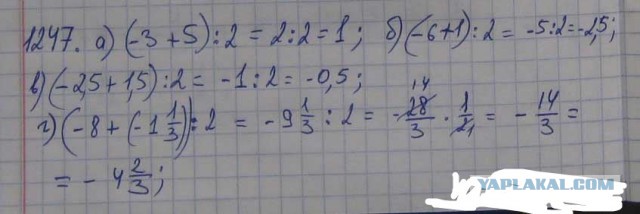 1247. а) (-3 + 5) : 2 = 2 : 2 = 1 ; б) (-6+1) : 2 = -5 : 2 = -2,5 ;
в) (-2,5 + 1,5) : 2 = -1 : 2 = -0,5 ;
г) (-8 + (-1 1/3)) : 2 = -9 1/3 : 2 = -28/3 14 · 1/2 1 = -14/3 =
= -4 2/3 ;
YAPLAKAL.COM